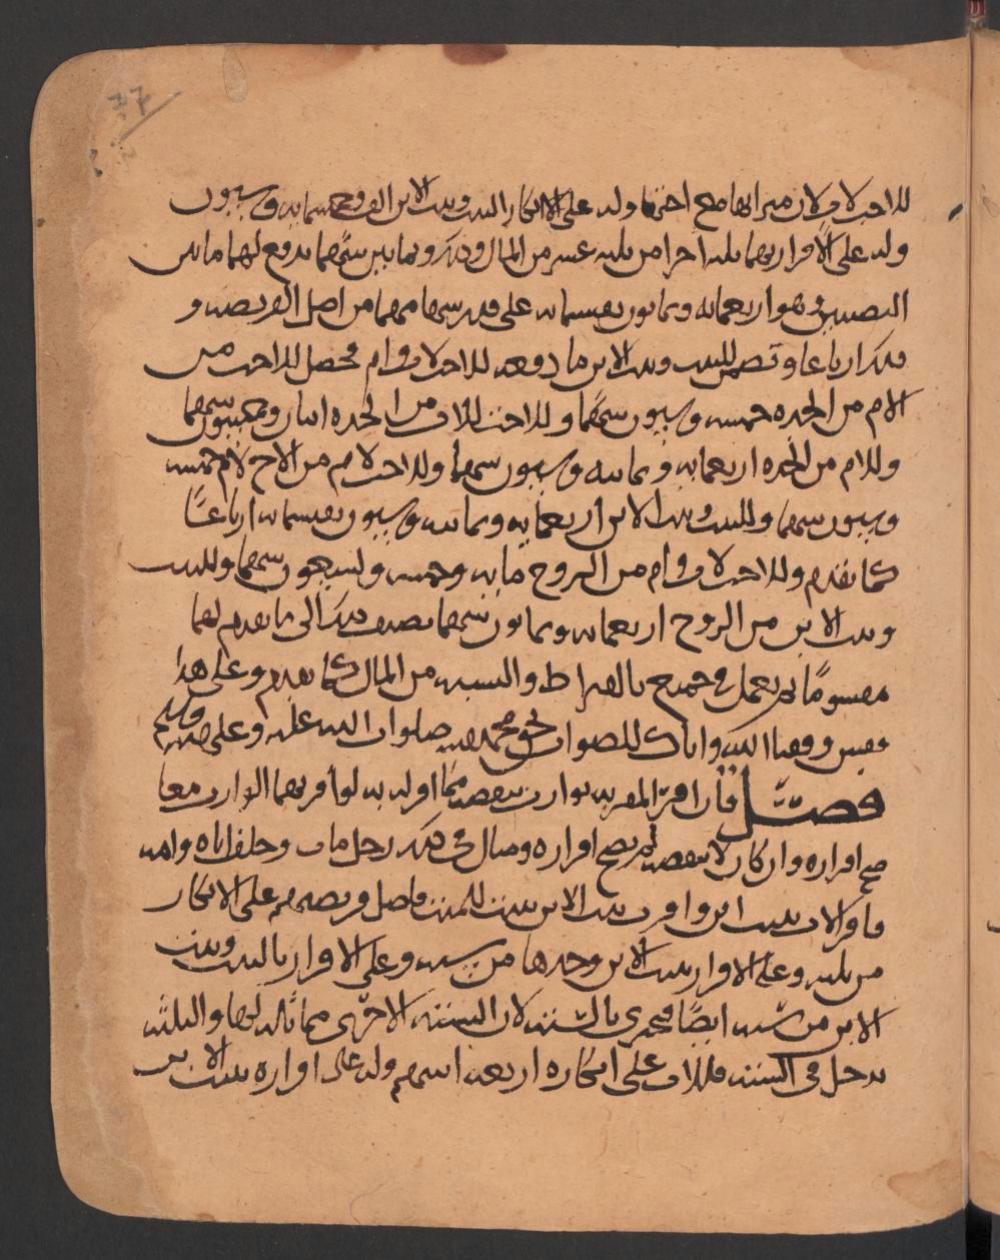 77
للاخت لاب لان ميراثها مع اختها وله على الانكار البنت وبنت الابن الف وخمسمايه وسبعون
وله على الاقرار بهما ثلثه اجزا من ثلثه عشر من المال وذلك وما بين سهما يدفع لهما ما بين
النصيبين وهو اربعمايه وثمانون يقسمانه على قدر سهامهما من اصل الفريضه و
ذلك ارباعا وتضم للبنت وبنت الابن ما دفعه للاخت لاب وام فحصل للاخت من
الام من الجده خمسه وسبعون سهما وللاخت للاب من الجده اثنان وخمسون سهما
وللام من الجده اربعمايه وثمانيه وسبعون سهما وللاخت لام من الاخ لام خمسه
وسبعون سهما وللبنت وبنت الابن اربعمايه وثمانيه وسبعون يقسمانه ارباعًا
كما تقدم وللاخت لاب وام من الزوج مايه وخمسه وتسعون سهما وللبنت
وبنت الابن من الزوج اربعمايه وثمانون سهما تضيف ذلك الى ما تقدم لهما
مقسومًا ثم تعمل في جميع بالقيراط والنسبه من المال كما تقدم وعلى هذا
فقس وفقنا الله واياك للصواب بحق محمد نبيه صلوات الله عليه وعلى اله وسلم
فصل فان اقر المقر به بوارث ينقصه مما اقر له به لو اقر بهما الوارث معا
صح اقراره وان كان لا ينقصه لم يصح اقراره ومثال ذلك رجل مات وخلف اباه وامه
فاقر الاب ببنت ابن واقرت بنت الابن ببنت للميت فاصل فريضتهم على الانكار
من ثلثه وعلى الاقرار ببنت الابن وحدها من سته وعلى الاقرار بالبنت وبنت
الابن من سته ايضًا فتجتزي بالستة لان الستة الاخرى مماثله لها والثلثه
تدخل في الستة فللاب على انكاره اربعه اسهم وله على اقراره ببنت الابن